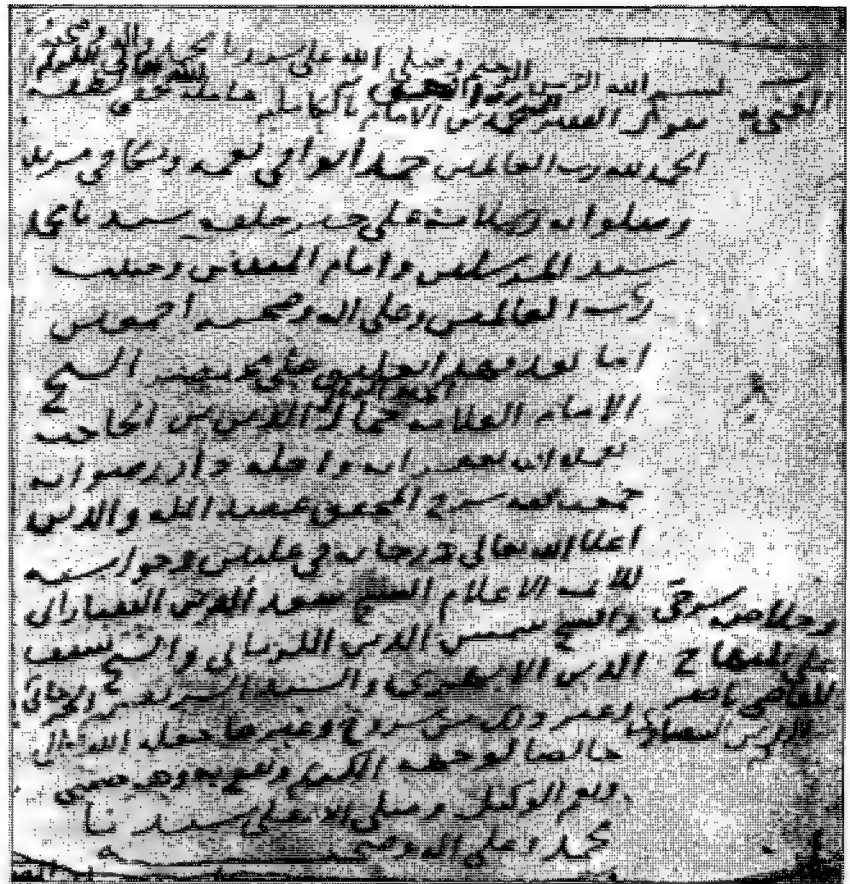 بسم الله الرحمن الرحيم وصلى الله على سيدنا محمد واله وصحبه
يقول العبد الفقير محمد بن الامام بالكاملية عامله الله تعالى بلطفه
الحمد لله رب العالمين حمدا يوافي نعمه ويكافي مزيده
وصلواته وصلاته على خير خلقه سيدنا محمد
سيد المرسلين وامام المتقين وحبيب
رب العالمين وعلى اله وصحبه اجمعين
اما بعد فهذا تعليق على مختصر الشيخ
الامام العلامة جمال الدين بن الحاجب
تغمده الله بغفرانه واحله دار رضوانه
جمعته من شرح المحقق عضد الملة والدين
اعلا الله تعالى درجاته في عليين وحواشيه
للائمة الاعلام الشيخ سعد الدين التفتازاني
والشيخ شمس الدين الكرماني والشيخ سيف
الدين الابهري والسيد الشريف الجرجاني
لغير ذلك من شروح وغيرها جعله الله تعالى
خالصا لوجهه الكريم ونفع به وهو حسبي
ونعم الوكيل وصلى الله على سيدنا
محمد وعلى اله وصحبه
وخلاص شرحي
على
للقاضي ناصر
الدين البيضاوي